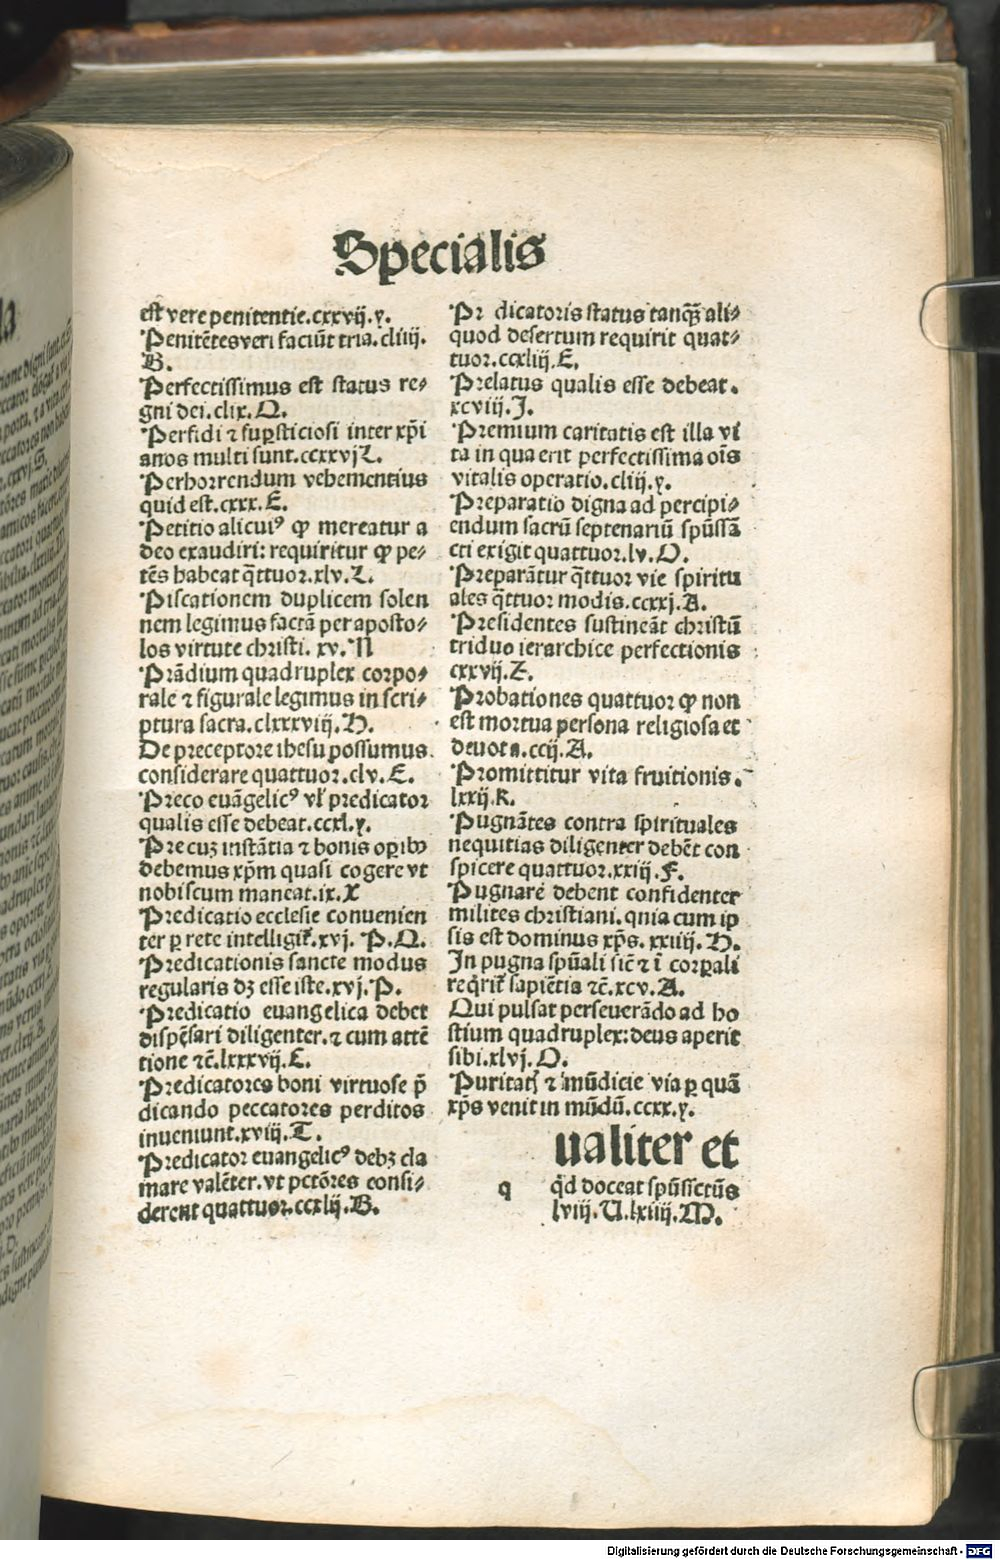 Specialis
est vere penitentie.cxxvij.y.
Penitētes veri faciūt tria.cliiij.
B.
Perfectissimus est status re⸗
gni dei.clix.Q.
Perfidi ⁊ sup̱sticiosi inter xp̄i
anos multi sunt.ccxxvj L.
Perhorrendum vehementius
quid est.cxxx.E.
Petitio alicuiꝰ ꝙ mereatur a
deo exaudiri: requiritur ꝙ pe⸗
tēs habeat q̄ttuor.xlv.L.
Piscationem duplicem solen
nem legimus factā per aposto⸗
los virtute christi. xv. N
Prādium quadruplex corpo⸗
rale ⁊ figurale legimus in scri⸗
ptura sacra.clxxxviij.H.
De preceptore ihesu possumus
considerare quattuor.clv.E.
Preco euāgelicꝰ vl̓ predicator
qualis esse debeat.ccxl.y.
Pre cuꝫ instātia ⁊ bonis oꝑibꝰ
debemus xp̄m quasi cogere vt
nobiscum maneat.ix.X
Predicatio ecclesie conuenien
ter ꝑ rete intelligit̓.xvj. P.Q.
Predicationis sancte modus
regularis dꝫ esse iste.xvj.P.
Predicatio euangelica debet
dispēsari diligenter.⁊ cum attē
tione ⁊c̄.lxxxvij.C.
Predicatores boni virtuose p̄
dicando peccatores perditos
inueniunt.xviij.T.
Predicator euangelicꝰ debꝫ cla
mare valēter.vt pctōres consi⸗
derent quattuor.ccxlij.B.
Pr dicatoris status tanq̄ꝫ ali⸗
quod desertum requirit quat⸗
tuor.ccxliij.E.
Prelatus qualis esse debeat.
xcviij.J.
Premium caritatis est illa vi
ta in qua erit perfectissima oīs
vitalis operatio.cliij.y.
Preparatio digna ad percipi⸗
endum sacrū septenariū spūssā
cti exigit quattuor.lv.O.
Preparātur q̄ttuor vie spiritu
ales q̄ttuor modis.ccxxj.A.
Presidentes sustineāt christū
triduo ierarchice perfectionis
cxxvij.Z.
Probationes quattuor ꝙ non
est mortua persona religiosa et
deuota.ccij.A.
Promittitur vita fruitionis.
lxxij.K.
Pugnātes contra spirituales
nequitias diligenter debēt con
spicere quattuor.xxiij.F.
Pugnare debent confidenter
milites christiani.qnia cum ip
sis est dominus xp̄s. xxiiij.H.
In pugna spūali sic̄ ⁊ ī corꝑali
req̄rit̓ sapiētia ⁊c̄.xcv.A.
Qui pulsat perseuerādo ad ho
stium quadruplex:deus aperit
sibi.xlvj.O.
Puritatꝭ ⁊ mūdicie via ꝑ quā
xp̄s venit in mūdū.ccxx.y.
ualiter et
q q̄d doceat spūssctūs
lviij.U.lxiiij.M.
Digitalisierung gefördert durch die Deutsche Forschungsgemeinschaft - DFG